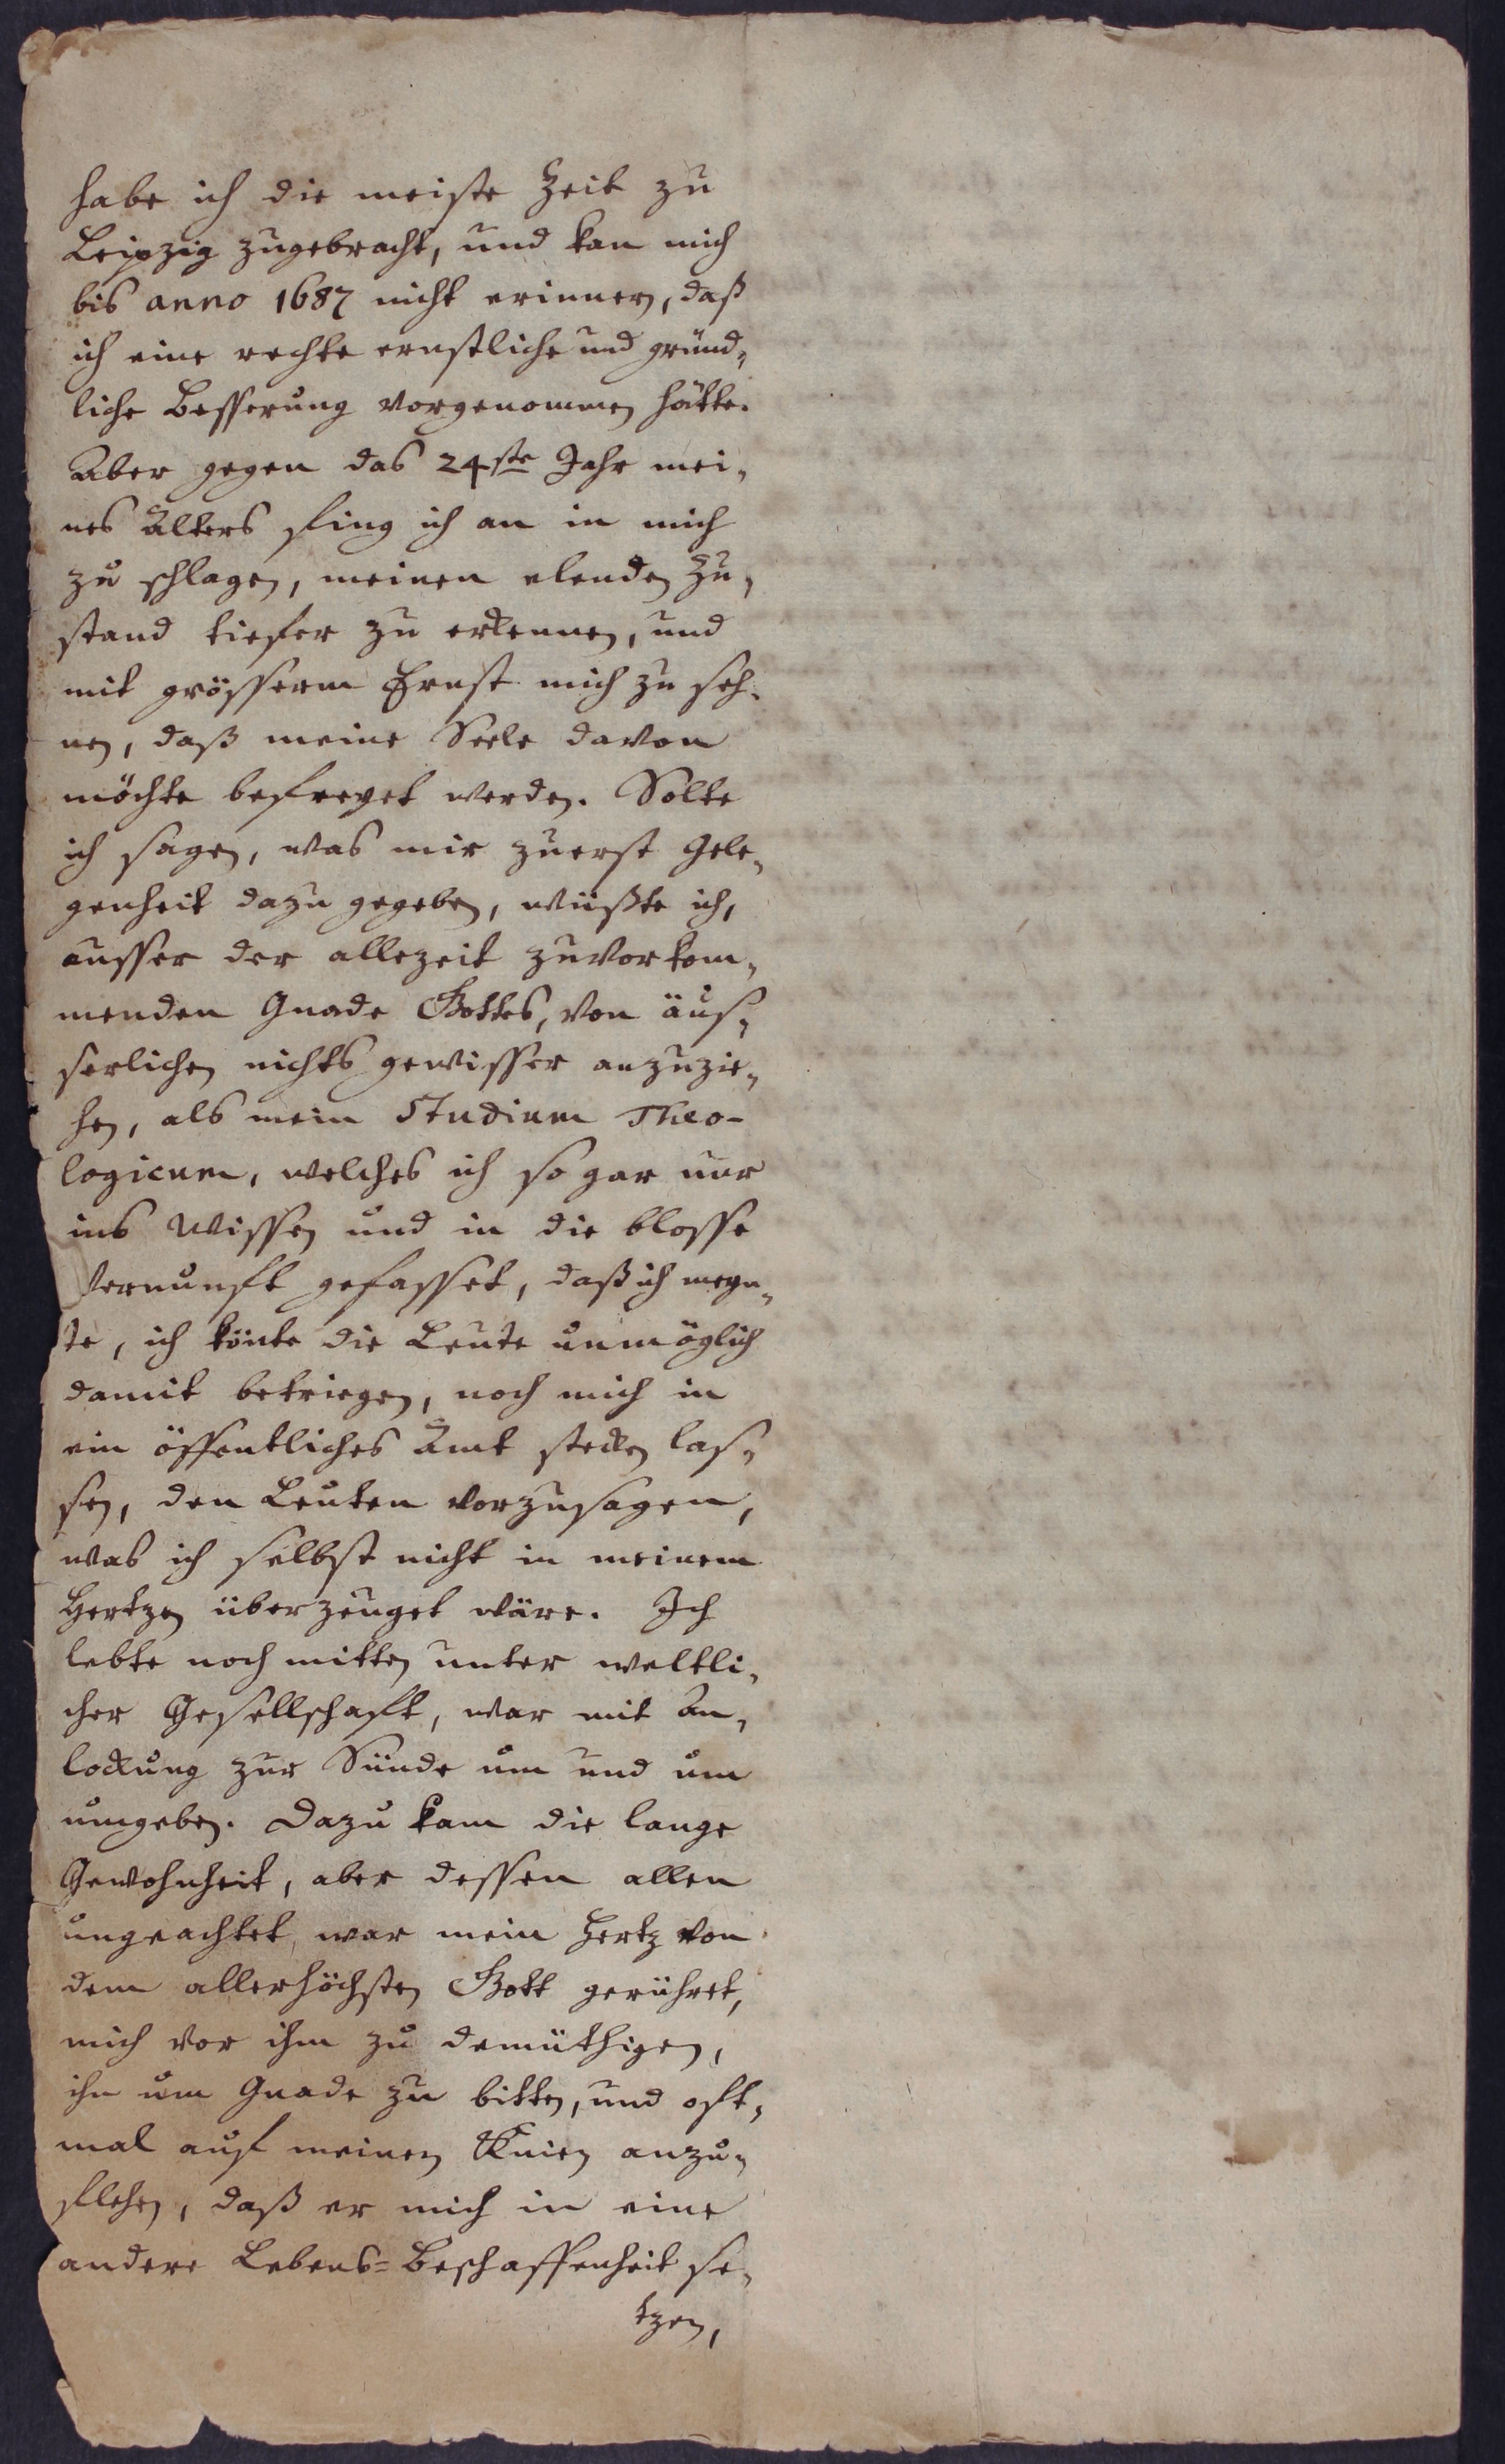 habe ich die meiste Zeit zu
Leipzig zugebracht, und kan mich
bis anno 1687 nicht erinnern, daß
ich eine rechte ernstliche und gründ-
liche Besserung vorgenommen hätte.
Aber gegen das 24ste Jahr mei-
nes Alters fing ich an in mich
zu schlagen, meinen elenden Zu-
stand tiefer zu erkennen, und
mit grösserm Ernst mich zu seh-
nen, daß meine Seele davon
möchte befreyet werden. Solte
ich sagen, was mir zuerst Gele-
genheit dazu gegeben, wüßte ich,
ausser der allezeit zuvorkom-
menden Gnade Gottes, von äus-
serlichen nichts gewisser anzuzie-
hen, als mein Studium Theo-
logicum, welches ich so gar nur
ins Wissen und in die blosse
Vernunft gefasset, daß ich meyn-
te, ich könte die Leute unmöglich
damit betriegen, noch mich in
ein öffentliches Amt stecken las-
sen, den Leuten vorzusagen,
was ich selbst nicht in meinem
Hertzen überzeuget wäre. Ich
lebte noch mitten unter weltli-
cher Gesellschaft, war mit An-
lockung zur Sünde um und um
umgeben. Dazu kam die lange
Gewohnheit, aber dessen allen
ungeachtet, war mein Hertz von
dem allerhöchsten Gott gerühret,
mich vor ihm zu demüthigen,
ihn um Gnade zu bitten, und oft-
mal auf meinen Knien anzu-
flehen, daß er mich in eine
andere Lebens=Beschaffenheit se-
tzen,